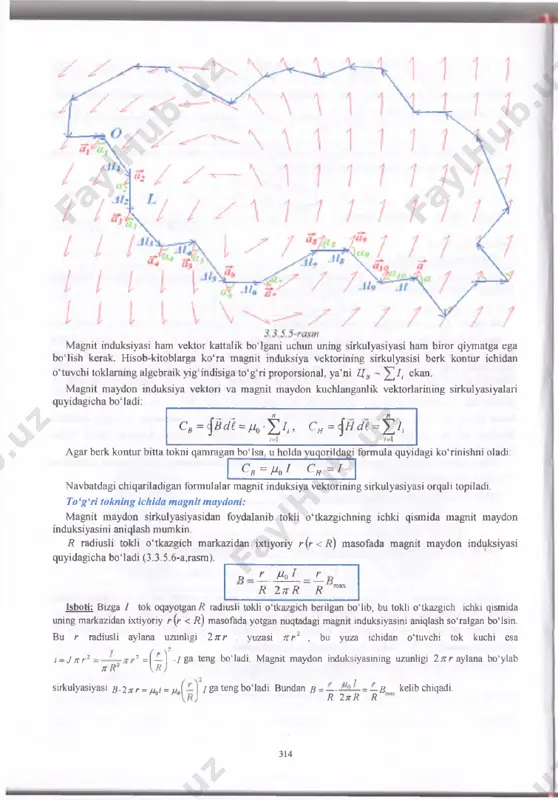 O
L
3.3.5.5-rasm
Magnit induksiyasi ham vektor kattalik bo'lgani uchun uning sirkulyasiyasi ham biror qiymatga ega
bo'lish kerak. Hisob-kitoblarga ko'ra magnit induksiya vektorining sirkulyasisi berk kontur ichidan
o'tuvchi toklarning algebraik yig'indisiga to'g'ri proporsional, ya'ni Ц_B ~ ∑I_i ekan.
Magnit maydon induksiya vektori va magnit maydon kuchlanganlik vektorlarining sirkulyasiyalari
quyidagicha bo'ladi:
C_B = ∮B⃗ dℓ⃗ = μ₀ · ∑ⁿᵢ₌₁ I_i, C_H = ∮H⃗ dℓ⃗ = ∑ⁿᵢ₌₁ I_i
Agar berk kontur bitta tokni qamragan bo'lsa, u holda yuqorildagi formula quyidagi ko'rinishni oladi:
C_B = μ₀ I C_H = I
Navbatdagi chiqariladigan formulalar magnit induksiya vektorining sirkulyasiyasi orqali topiladi.
To'g'ri tokning ichida magnit maydoni:
Magnit maydon sirkulyasiyasidan foydalanib tokli o'tkazgichning ichki qismida magnit maydon
induksiyasini aniqlash mumkin.
R radiusli tokli o'tkazgich markazidan ixtiyoriy r (r < R) masofada magnit maydon induksiyasi
quyidagicha bo'ladi (3.3.5.6-a,rasm).
B = r/R · μ₀ I/2πR = r/R B_max
Isboti: Bizga I tok oqayotgan R radiusli tokli o'tkazgich berilgan bo'lib, bu tokli o'tkazgich ichki qismida
uning markazidan ixtiyoriy r (r < R) masofada yotgan nuqtadagi magnit induksiyasini aniqlash so'ralgan bo'lsin.
Bu r radiusli aylana uzunligi 2πr yuzasi πr² , bu yuza ichidan o'tuvchi tok kuchi esa
i = Jπr² = I/πR² πr² = (r/R)² · I ga teng bo'ladi. Magnit maydon induksiyasining uzunligi 2πr aylana bo'ylab
sirkulyasiyasi B·2πr = μ₀i = μ₀(r/R)² I ga teng bo'ladi. Bundan B = r/R · μ₀ I/2πR = r/R B_max kelib chiqadi.
314
FaylHub.uz